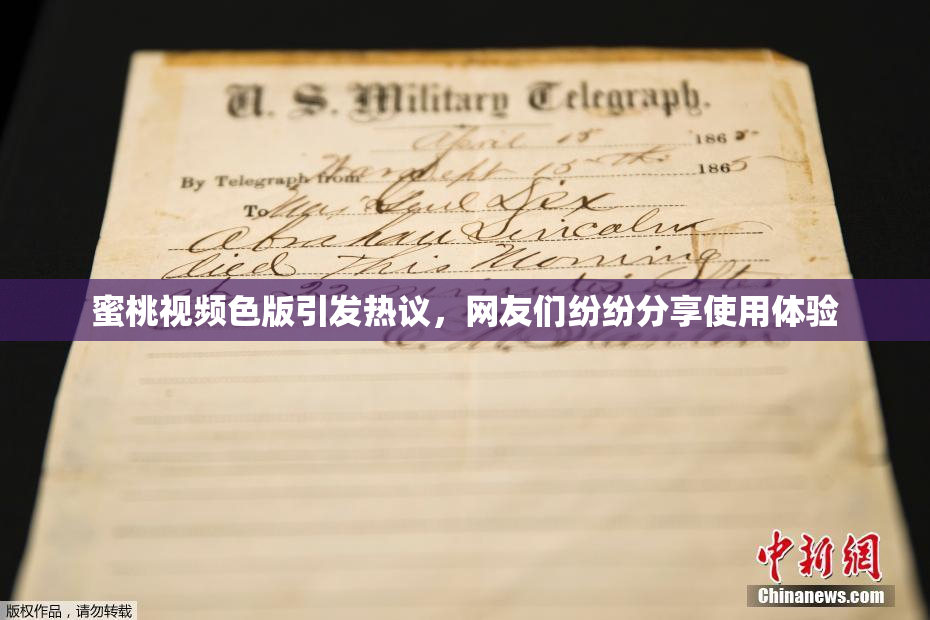 U. S. Military Telegraph.
April 15 1865
By Telegraph from War Dept 15th 1865
To Maj Genl Dix
Abraham Lincoln
died This Morning
at 22 minutes after
蜜桃视频色版引发热议，网友们纷纷分享使用体验
E. M. Stanton
中新網
Chinanews.com
版权作品，请勿转载